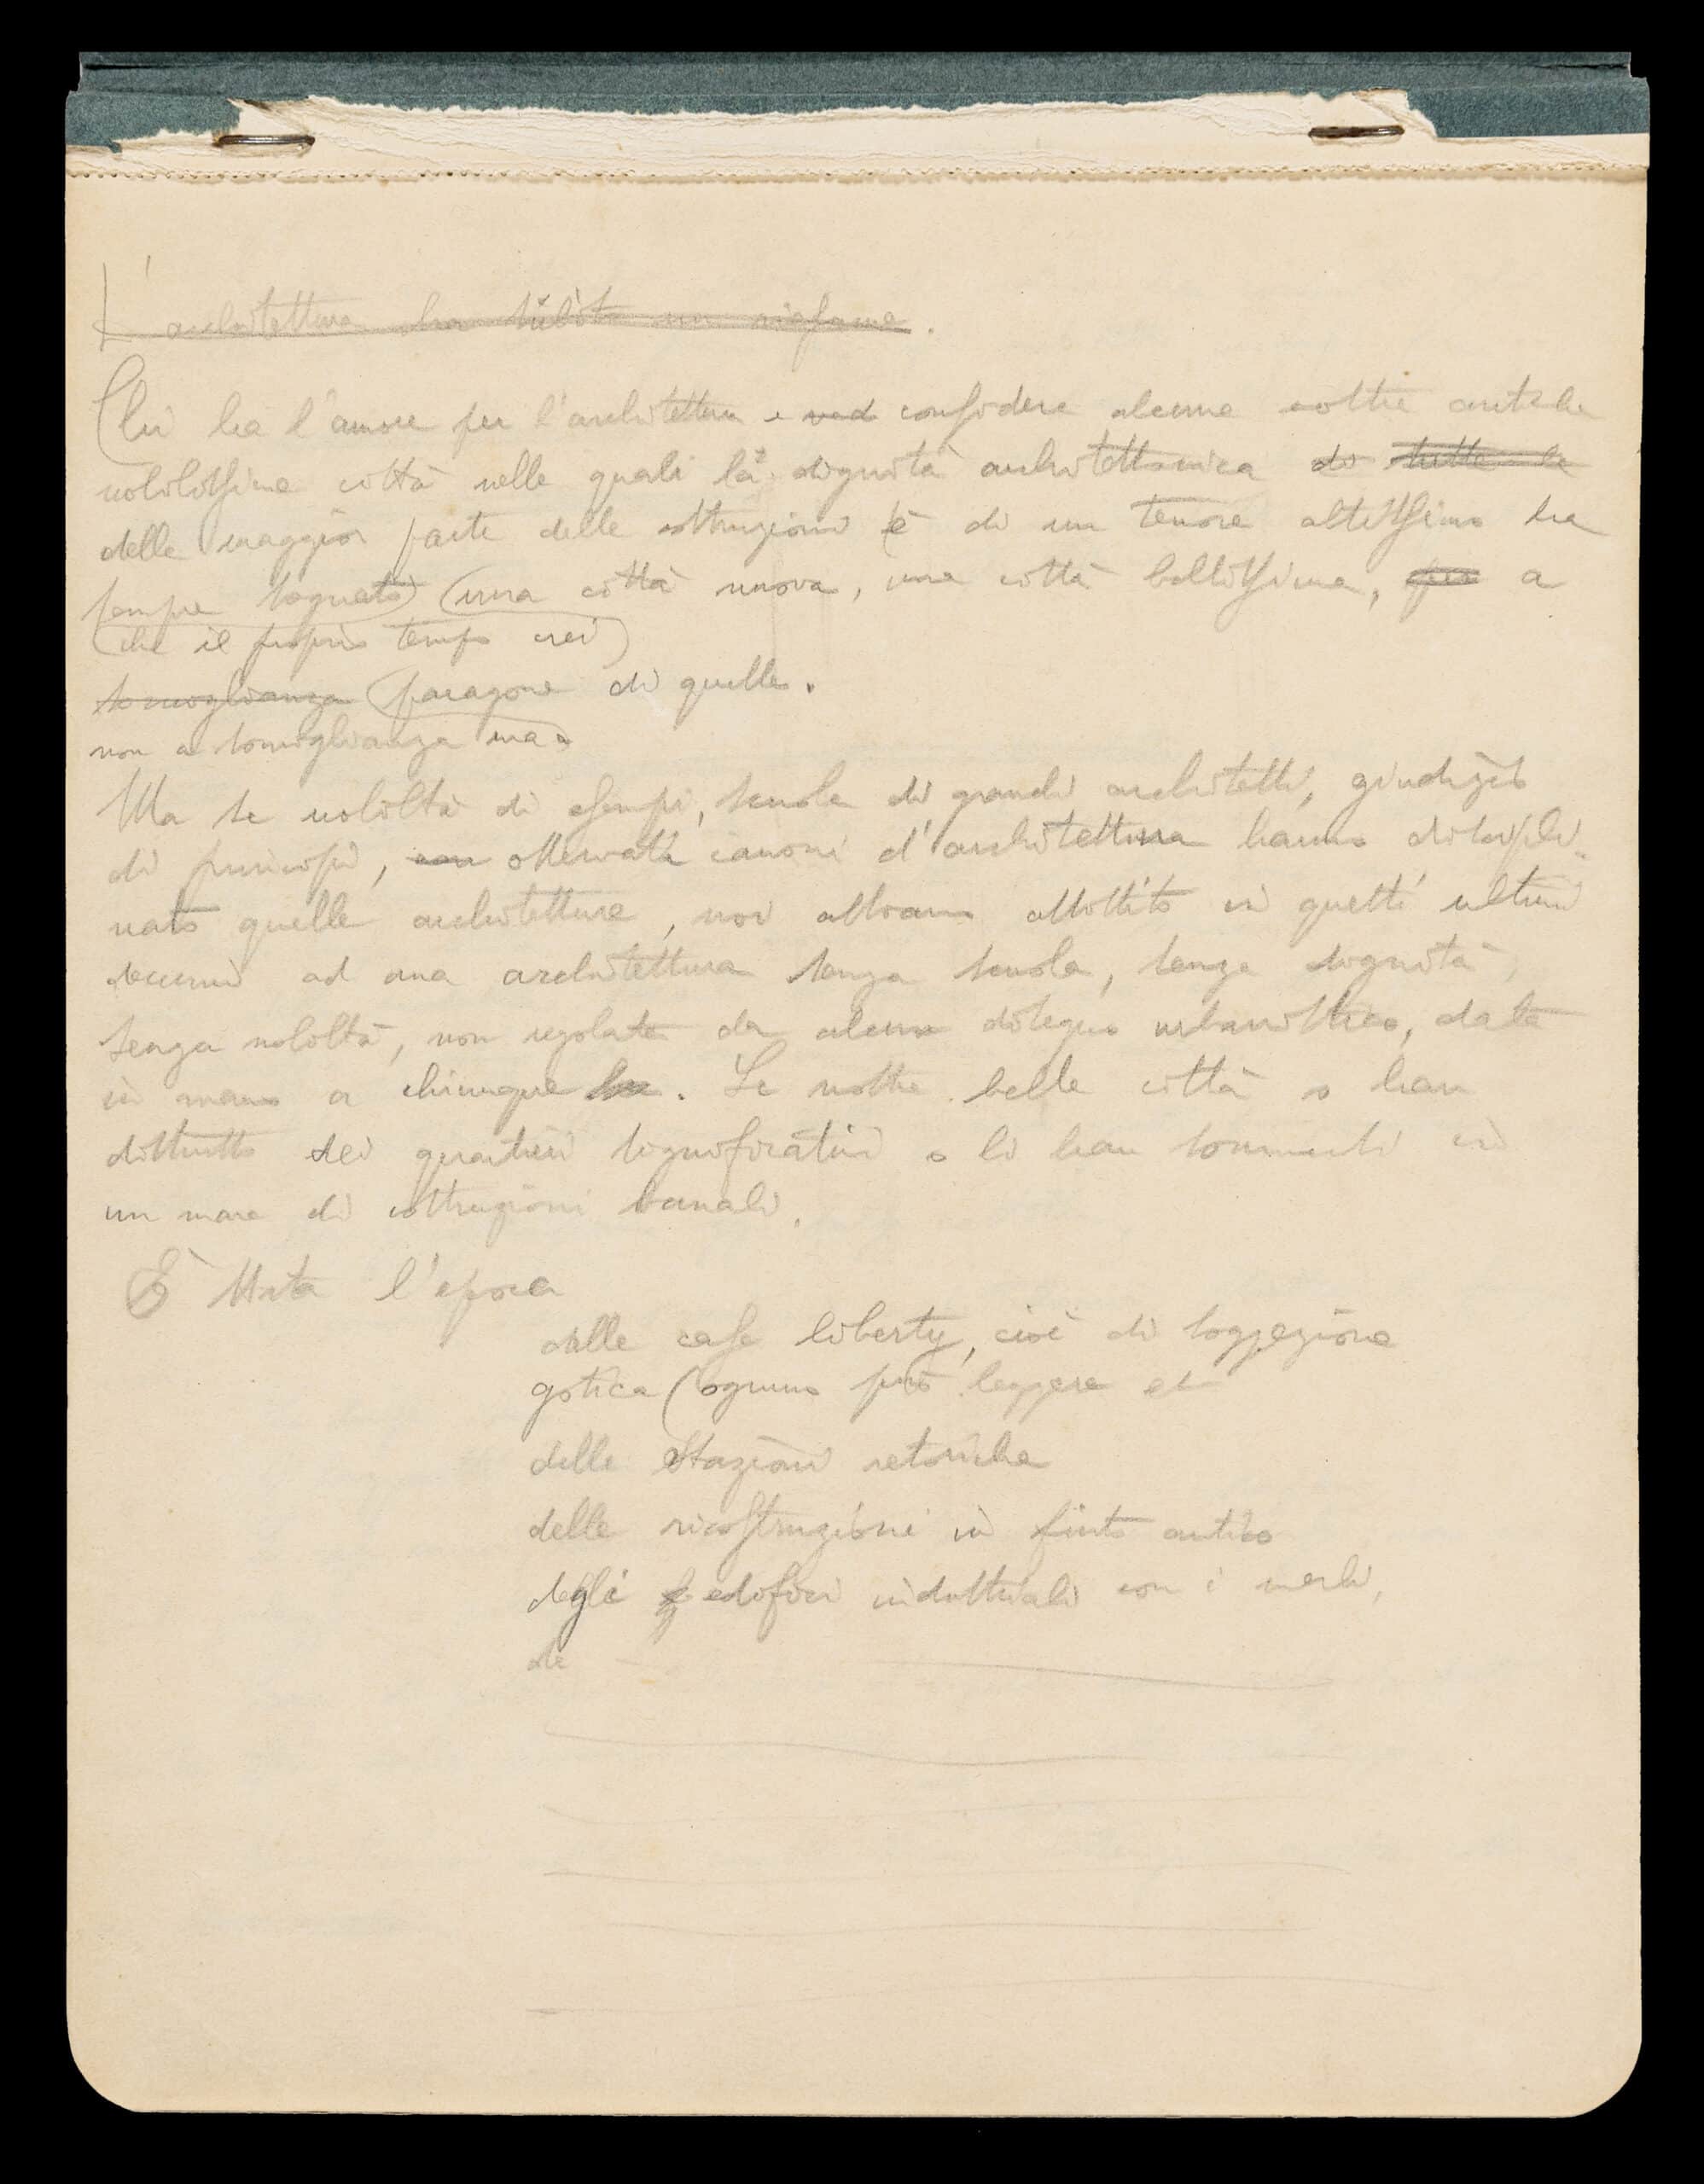 L'architettura ha subito un
Chi ha l'amore per l'architettura e ved considera alcune nostre antiche
nobilissime città nelle quali la dignità architettonica di tutte le
delle maggior parte delle costruzioni è di un tenore altissimo ha
sempre sognato (una città nuova, una città bellissima, per a
(che il proprio tempo crei)
somiglianza (paragone di quelle.
non a somiglianza ma a
Ma se nobiltà di esempi, scuola di grandi architetti, giudizio
di principi, con osservati canoni d'architettura hanno discipli-
nato quelle architetture, noi abbiamo assistito in questi ultimi
decenni ad una architettura senza scuola, senza dignità,
senza nobiltà, non regolata da alcun disegno urbanistico, data
in mano a chiunque. Le nostre belle città o han
distrutto dei quartieri significativi o li han sommersi in
un mare di costruzioni banali.
È stata l'epoca
delle case liberty, cioè di soggezione
gotica (ognuno può leggere
delle stazioni retoriche
delle ricostruzioni in finto antico
degli edifici industriali con i merli,
de